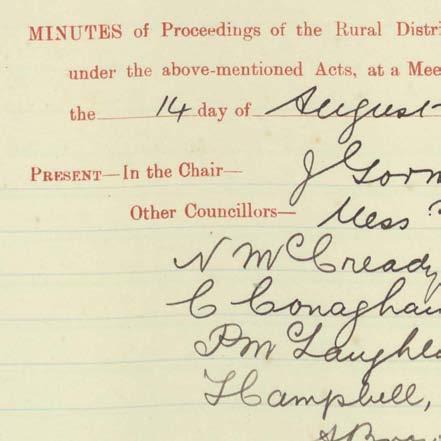 MINUTES of Proceedings of the Rural Distri
under the above-mentioned Acts, at a Mee
the 14 day of August
PRESENT—In the Chair— J Gorm
Other Councillors— Mess
N McCready
C Conaghan
P McLaughl
Campbell,